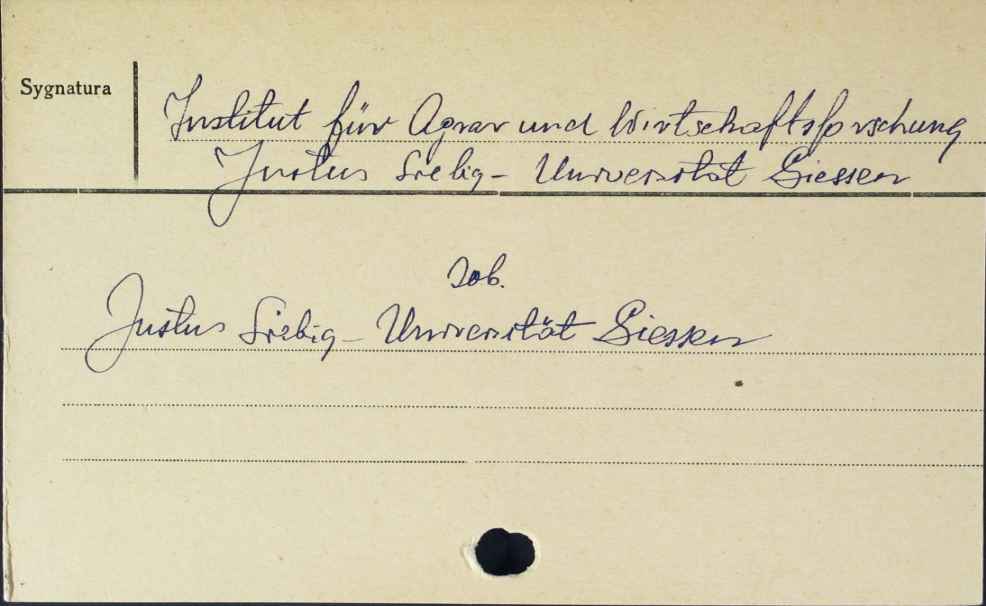 Sygnatura
Institut für Agrar und Wirtschaftsforschung
Justus Liebig - Universität Giessen
Zob.
Justus Liebig - Universität Giessen